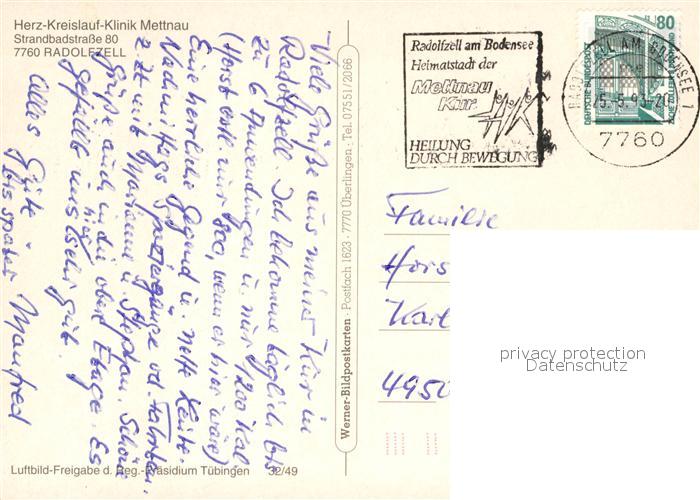 Herz-Kreislauf-Klinik Mettnau
Strandbadstraße 80
7760 RADOLFZELL
Viele Grüße aus meiner Kur in
Radolfzell. Ich bekomme täglich bis
zu 6 Anwendungen u. nur 1200 Kal.
(Horst evtl. nur 800, wenn er hier wäre)
Eine herrliche Gegend u. nette Leute.
Nachmittags Spaziergänge od. Fahrten,
z. Zt. mit Marianne u. Stephan. Schöne
Grüße auch in die obere Etage. Es
gefällt uns hier sehr gut.
Alles Gute.
Bis später Manfred
Werner-Bildpostkarten · Postfach 1623 · 7770 Überlingen · Tel. 07551/2066
Luftbild-Freigabe d. Reg.-Präsidium Tübingen 32/49
Radolfzell am Bodensee
Heimatstadt der
Mettnau
Kur
HEILUNG
DURCH BEWEGUNG
80
DEUTSCHE BUNDESPOST
AM BODENSEE
7760
Familie
Hors
Karl
4950
privacy protection
Datenschutz